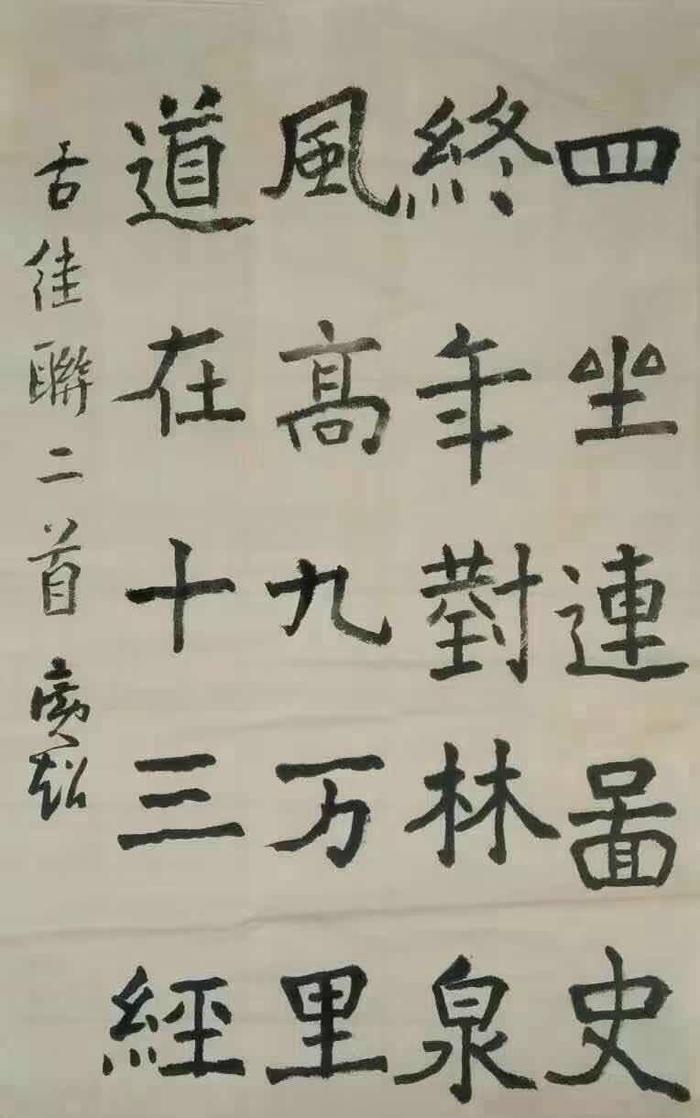 四坐連啚史
終年對林泉
風高九万里
道在十三經
古佳聯二首